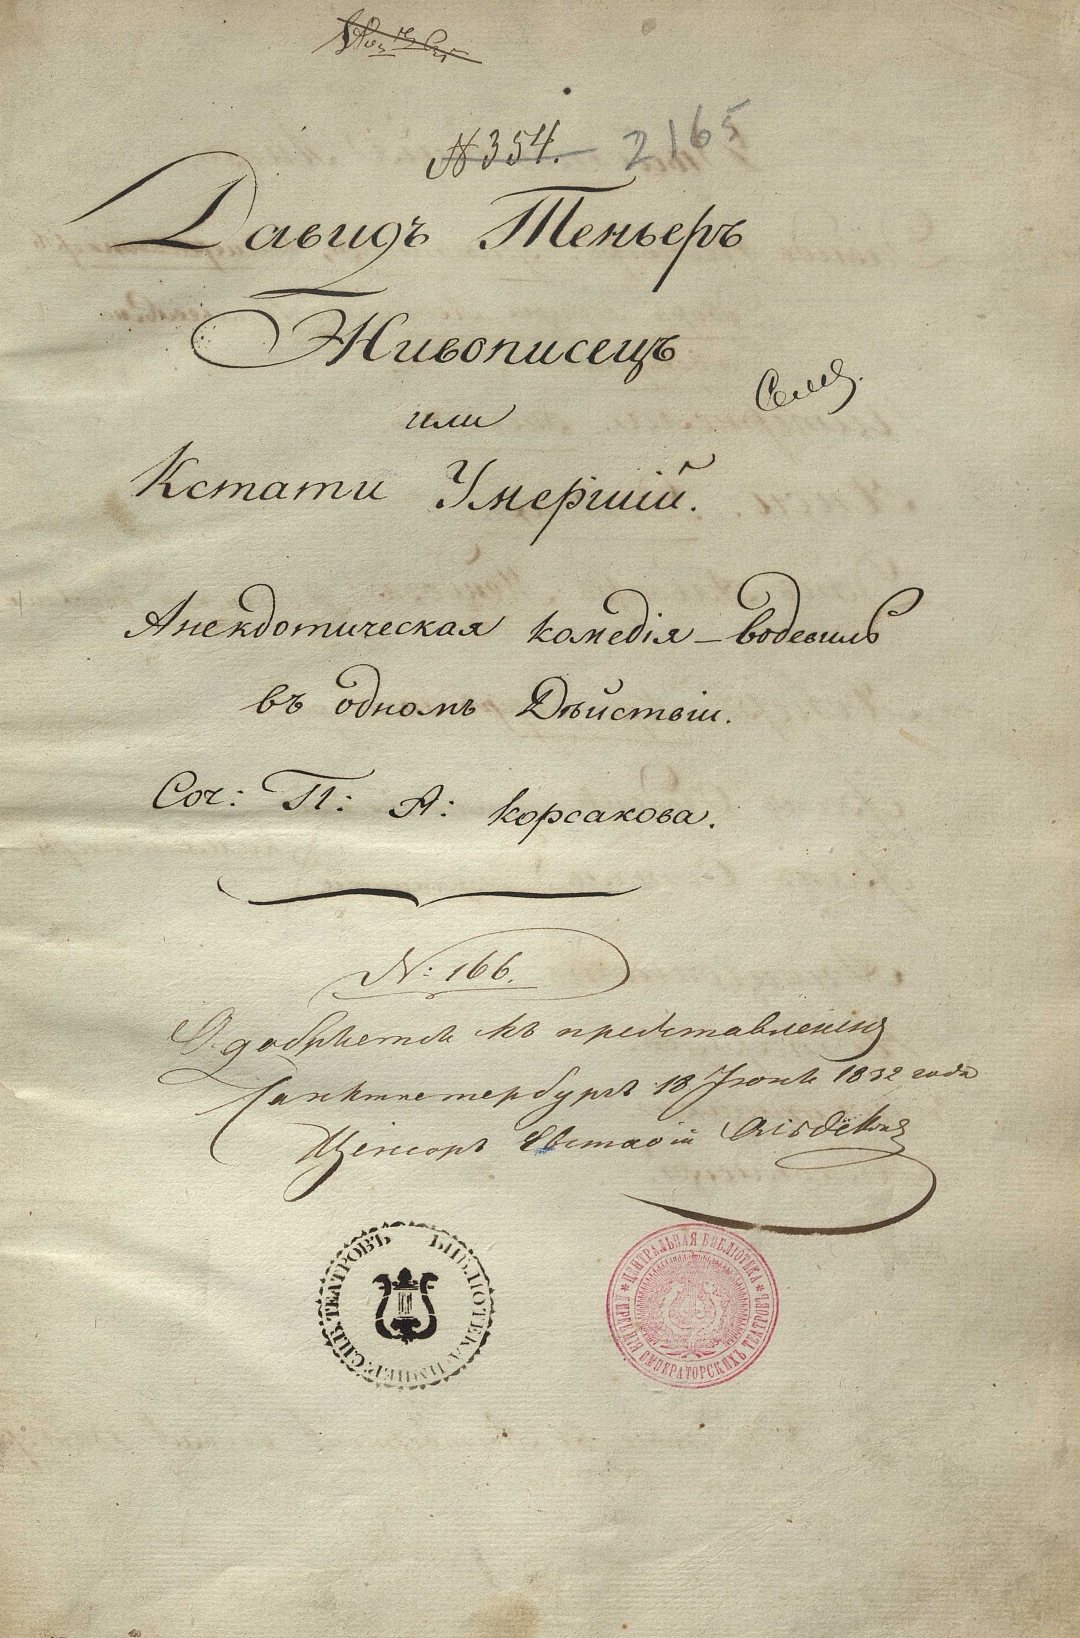 № 354. 2165
Давидъ Теньеръ
Живописецъ
или
Кстати Умершій.
Анекдотическая комедія-водевиль
въ одномъ Дѣйствіи.
Соч: П: А: Корсакова.
№: 166.
Одобряется къ представленію
Санктпетербургъ 18 Іюня 1832 года
Ценсоръ Евстафій Ольдекопъ
БИБЛІОТЕКА ИМПЕР: СПБ. ТЕАТРОВЪ
ЦЕНТРАЛЬНАЯ БИБЛІОТЕКА
ИМПЕРАТОРСКИХЪ ТЕАТРОВЪ